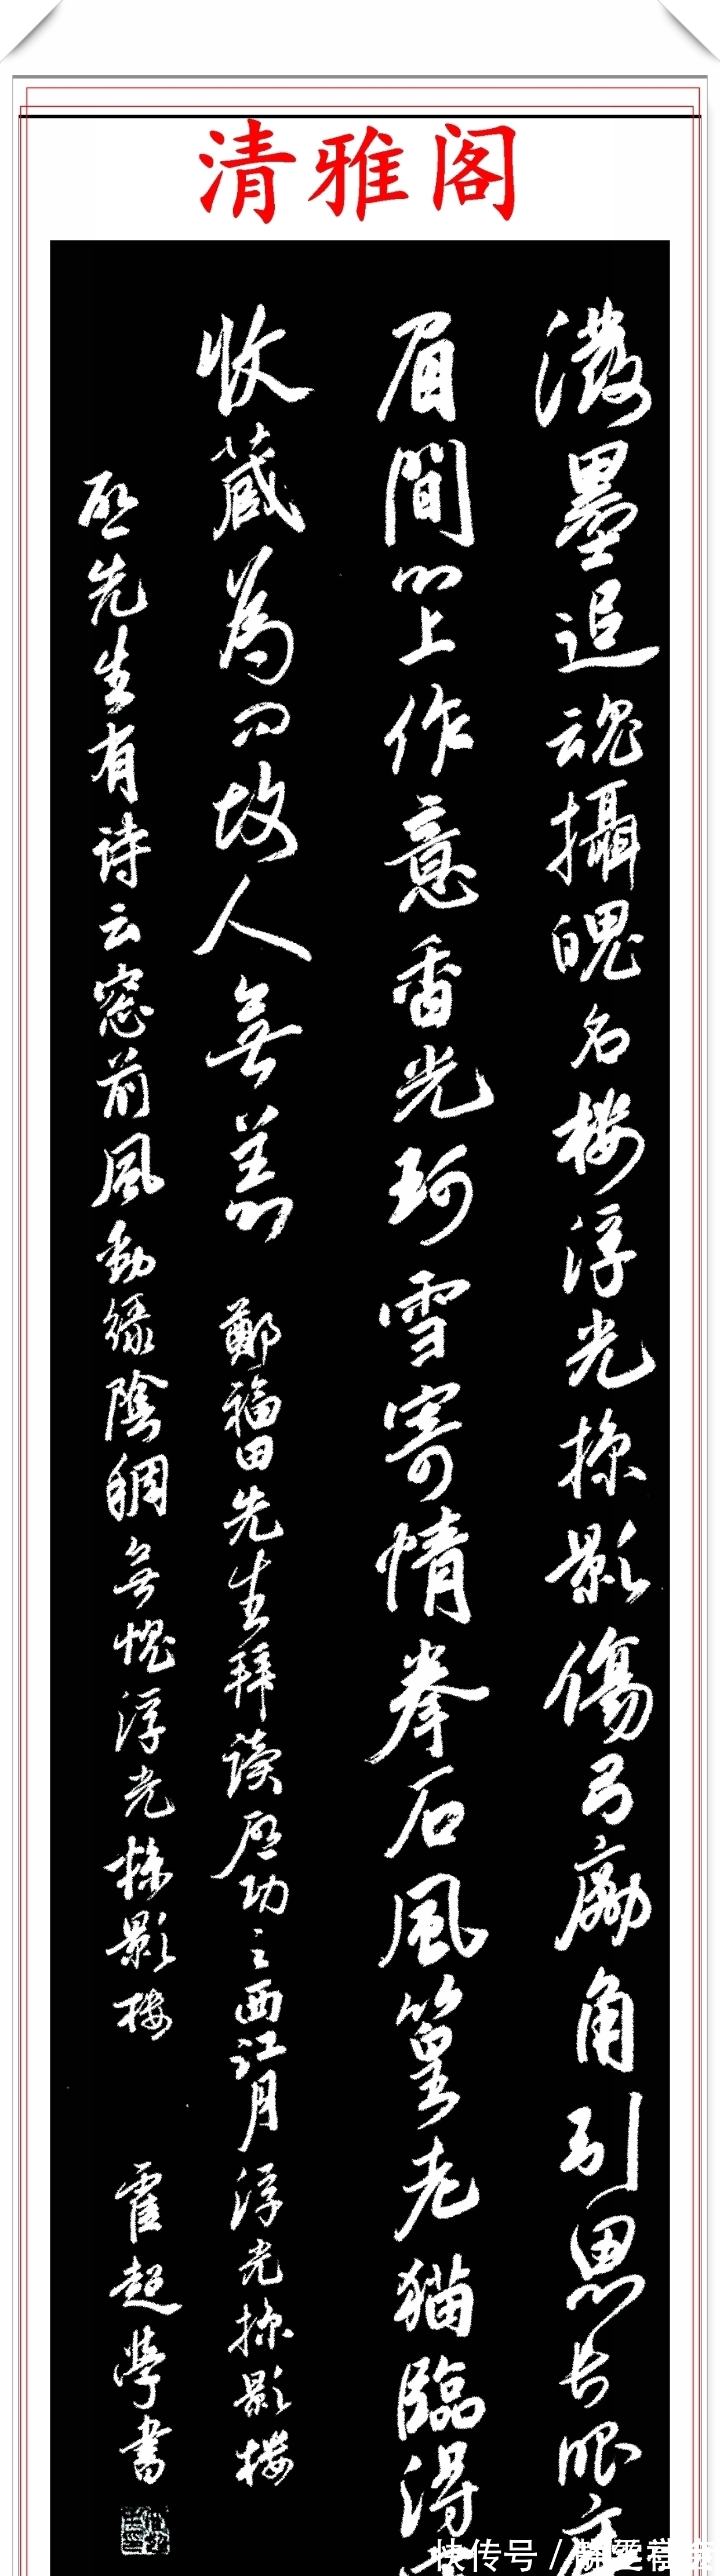 清雅阁
潑墨追魂攝魄名楼浮光掠影傷弓勵角引思长眼底
眉間心上作意香光珂雪寄情拳石風篁老猫臨得
收藏為向故人無恙
鄭福田先生拜读启功之西江月浮光掠影楼
启先生有诗云窓前風動绿陰稠無愧浮光掠影楼
霍超学書
快传号 /